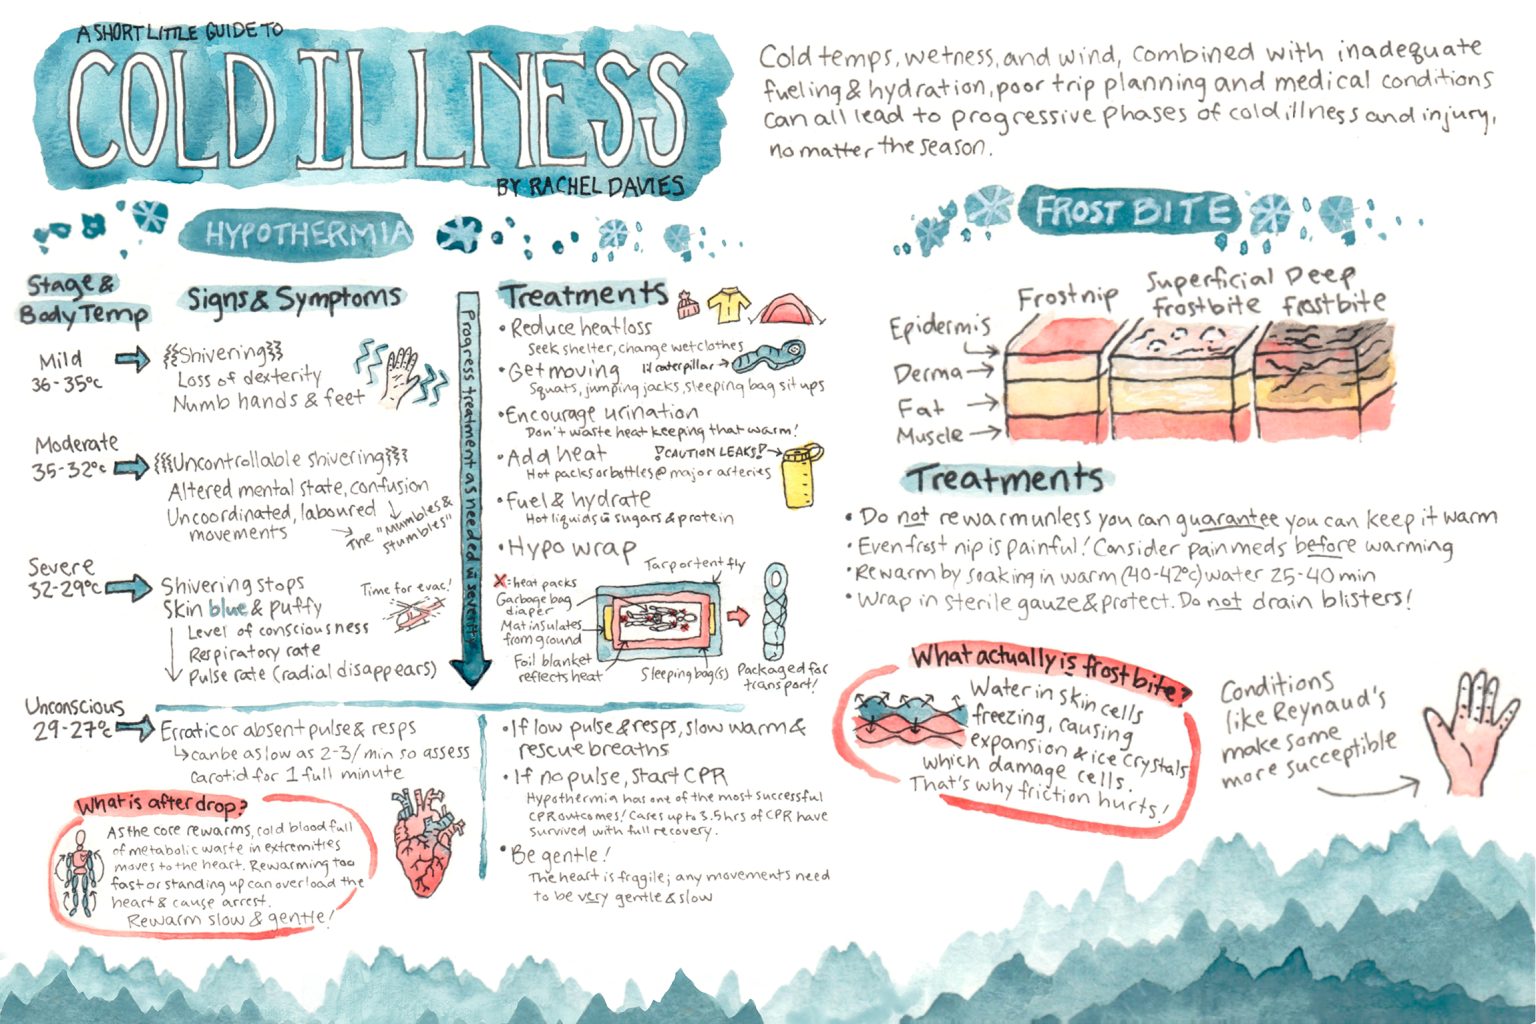 A SHORT LITTLE GUIDE TO
COLD ILLNESS
BY RACHEL DAVIES
Cold temps, wetness, and wind, combined with inadequate
fueling & hydration, poor trip planning and medical conditions
can all lead to progressive phases of cold illness and injury,
no matter the season.
HYPOTHERMIA
Stage &
Body Temp
Signs & Symptoms
Mild
36-35°c
Shivering
Loss of dexterity
Numb hands & feet
Moderate
35-32°c
Uncontrollable shivering
Altered mental state, confusion
Uncoordinated, laboured
movements
The "Mumbles &
stumbles"
Severe
32-29°c
Shivering stops
Skin blue & puffy
Level of consciousness
Respiratory rate
Pulse rate (radial disappears)
Time for evac!
Unconscious
29-27°c
Erratic or absent pulse & resps
can be as low as 2-3/min so assess
carotid for 1 full minute
What is after drop?
As the core rewarms, cold blood full
of metabolic waste in extremities
moves to the heart. Rewarming too
fast or standing up can overload the
heart & cause arrest.
Rewarm slow & gentle!
Progress treatment as needed w severity
Treatments
• Reduce heat loss
Seek shelter, change wet clothes
• Get moving
lil caterpillar
Squats, jumping jacks, sleeping bag sit ups
• Encourage urination
Don't waste heat keeping that warm!
• Add heat
!CAUTION LEAKS!
Hot packs or bottles @ major arteries
• Fuel & hydrate
Hot liquids w sugars & protein
• Hypo wrap
X = heat packs
Garbage bag
diaper
Mat insulates
from ground
Foil blanket
reflects heat
Tarp or tent fly
Sleeping bag(s)
Packaged for
transport!
• If low pulse & resps, slow warm &
rescue breaths
• If no pulse, start CPR
Hypothermia has one of the most successful
CPR outcomes! Cases up to 3.5hrs of CPR have
survived with full recovery.
• Be gentle!
The heart is fragile; any movements need
to be very gentle & slow
FROST BITE
Frostnip
Superficial
frostbite
Deep
frostbite
Epidermis
Derma
Fat
Muscle
Treatments
• Do not rewarm unless you can guarantee you can keep it warm
• Even frost nip is painful! Consider pain meds before warming
• Rewarm by soaking in warm (40-42°c) water 25-40 min
• Wrap in sterile gauze & protect. Do not drain blisters!
What actually is frost bite?
Water in skin cells
freezing, causing
expansion & ice crystals
which damage cells.
That's why friction hurts!
Conditions
like Reynaud's
make some
more succeptible